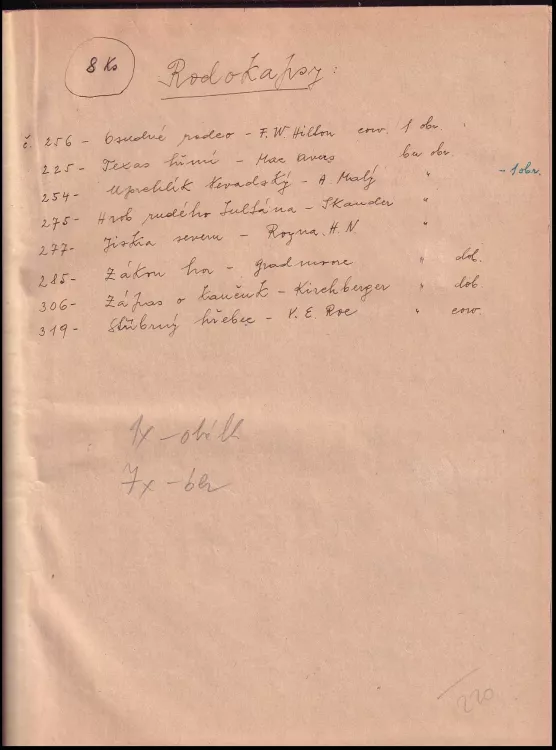 8 Ks
Rodokapsy:
č. 256 - Osudné rodeo - F.W. Hilton cow. 1 obr.
225 - Texas hřmí - Mac Avers bez obr.
254 - Uprchlík Nevadský - A. Malý " - 1 obr.
275 - Hrob rudého Sultána - Skander "
277 - Jiskra severu - Rozna. H. N. "
285 - Zákon hor - Gradmoore " dob.
306 - Zápas o kaučuk - Kirchberger " dob.
319 - Stříbrný hřebec - V. E. Roe " cow.
1x - obálk
7x - bez
220